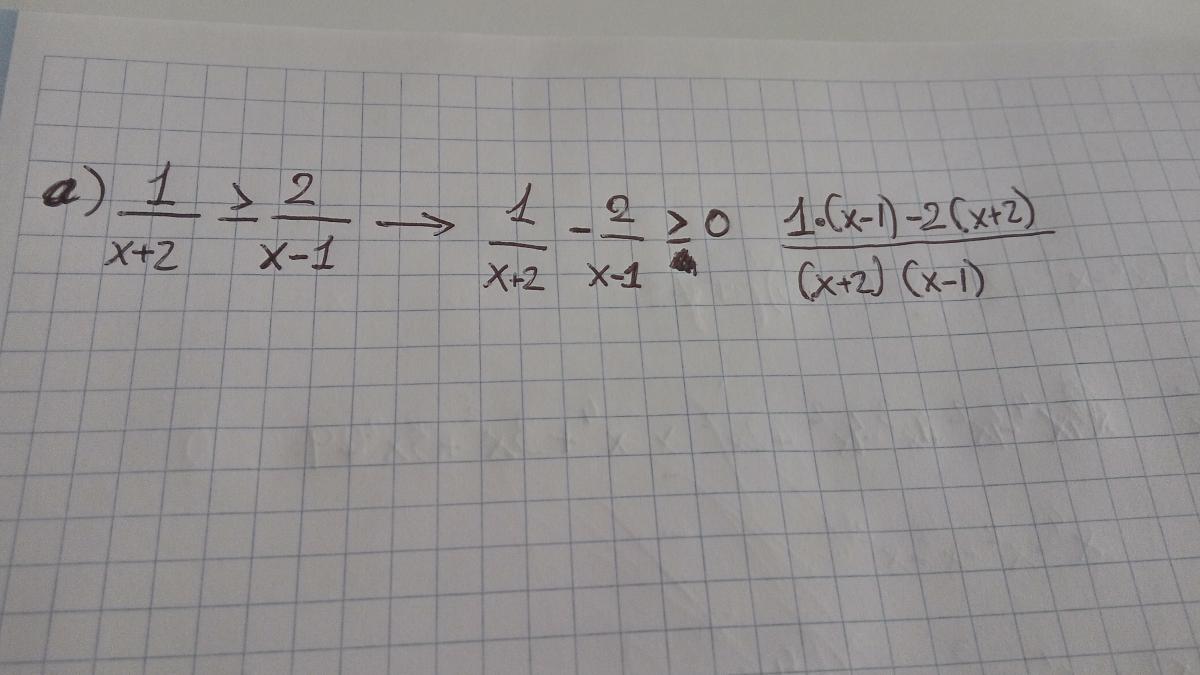 a) 1/(x+2) ≥ 2/(x-1) → 1/(x+2) - 2/(x-1) ≥ 0 (1·(x-1)-2(x+2))/((x+2)(x-1))